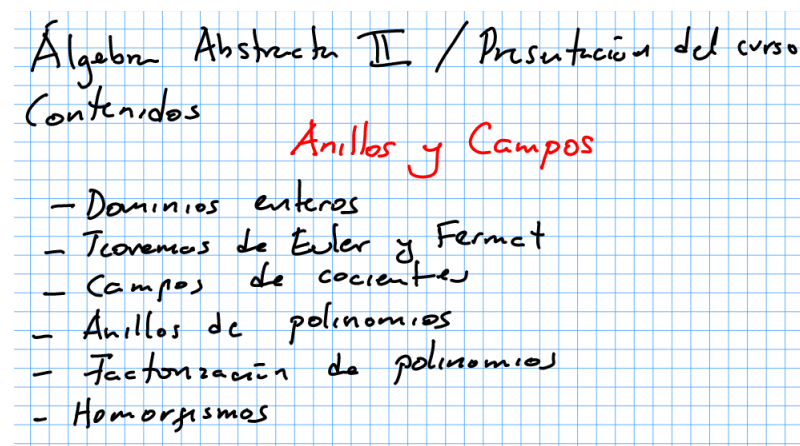 Álgebra Abstracta II / Presentación del curso
Contenidos
Anillos y Campos
- Dominios enteros
- Teoremas de Euler y Fermat
- Campos de cocientes
- Anillos de polinomios
- Factorización de polinomios
- Homorfismos